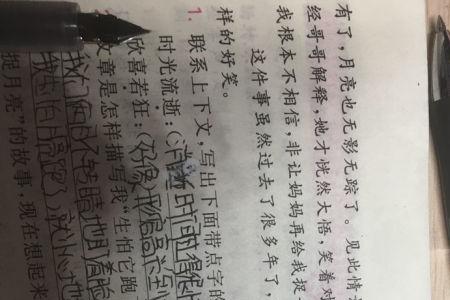 有了，月亮也无影无踪了。见此情
经哥哥解释，她才恍然大悟，笑着对
我根本不相信，非让妈妈再给我捉
这件事虽然过去了很多年了，
样的好笑。
1. 联系上下文，写出下面带点字的
时光流逝（时间很
欣喜若狂：（形容高兴到
文章是怎样描写我“生怕它跑
不转睛地盯着脸
我生怕
捉月亮”的故事，现在想起来